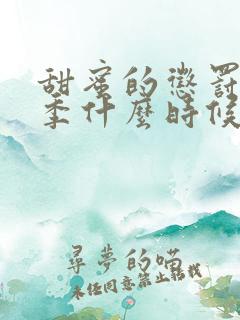 甜蜜的懲罰
季什麼時候
尋夢的喵
未经同意禁止转载